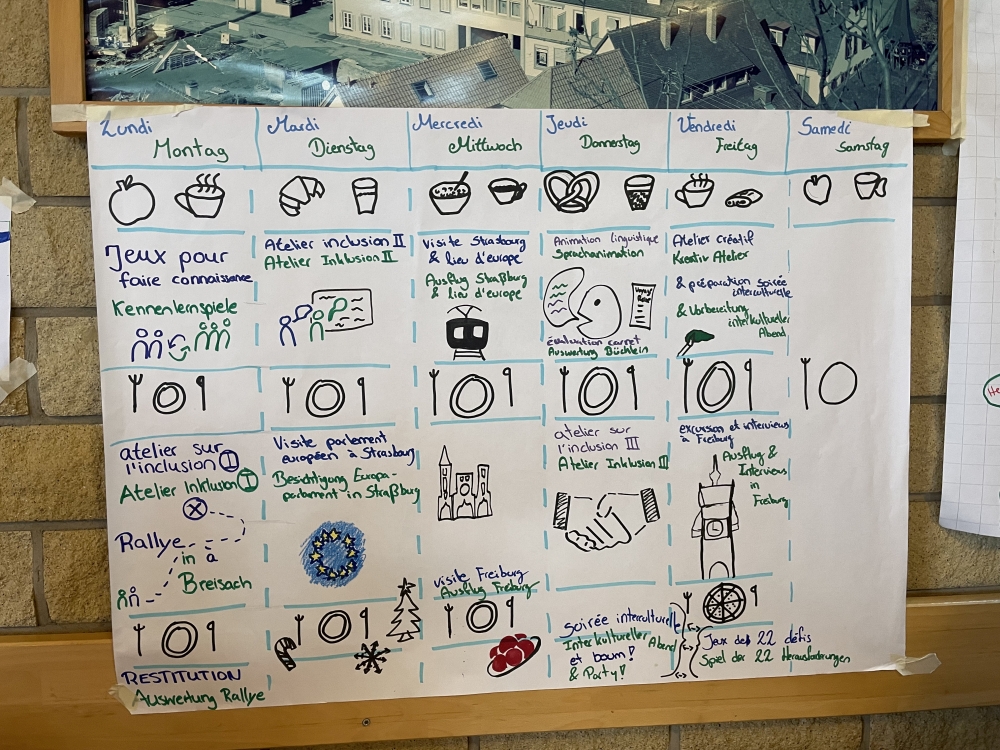 Lundi
Montag
Mardi
Dienstag
Mercredi
Mittwoch
Jeudi
Donnerstag
Vendredi
Freitag
Samedi
Samstag
Jeux pour
faire connaissance
Kennenlernspiele
Atelier inclusion II
Atelier Inklusion II
visite Strasbourg
& lieu d'europe
Ausflug Straßburg
& lieu d'europe
Animation linguistique
Sprachanimation
évaluation carnet
Auswertung Büchlein
Atelier créatif
Kreativ Atelier
& préparation soirée
interculturelle
& Vorbereitung
interkultureller
Abend
atelier sur
l'inclusion I
Atelier Inklusion I
Rallye
in à
Breisach
Visite parlement
européen à Strasbourg
Besichtigung Europa-
parlament in Straßburg
visite Freiburg
Ausflug Freiburg
atelier sur
l'inclusion III
Atelier Inklusion III
excursion et interviews
à Freiburg
Ausflug &
Interviews
in
Freiburg
RESTITUTION
Auswertung Rallye
Soirée interculturelle
Interkultureller Abend
et boum!
& Party!
Jeux des 22 défis
Spiel der 22 Herausforderungen
He